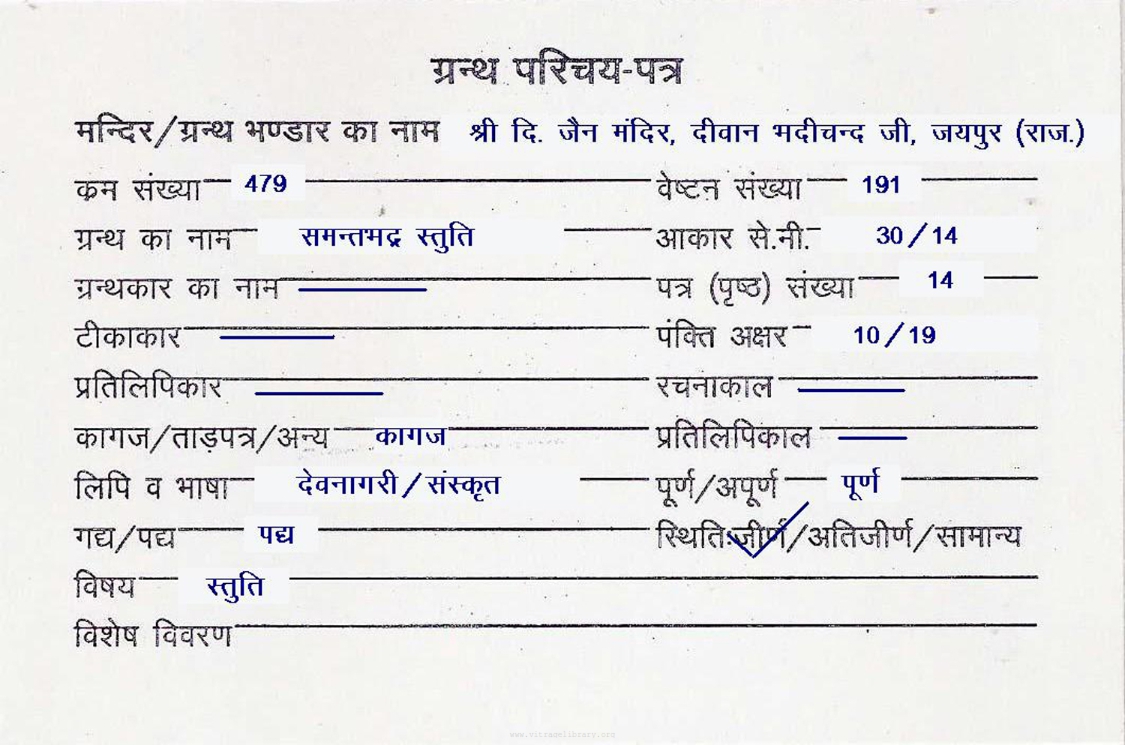 ग्रन्थ परिचय-पत्र
मन्दिर/ग्रन्थ भण्डार का नाम श्री दि. जैन मंदिर, दीवान भदीचन्द जी, जयपुर (राज.)
क्रम संख्या 479 वेष्टन संख्या 191
ग्रन्थ का नाम समन्तभद्र स्तुति आकार से.मी. 30/14
ग्रन्थकार का नाम पत्र (पृष्ठ) संख्या 14
टीकाकार पंक्ति अक्षर 10/19
प्रतिलिपिकार रचनाकाल
कागज/ताड़पत्र/अन्य कागज प्रतिलिपिकाल
लिपि व भाषा देवनागरी/संस्कृत पूर्ण/अपूर्ण पूर्ण
गद्य/पद्य पद्य स्थितिःजीर्ण/अतिजीर्ण/सामान्य
विषय स्तुति
विशेष विवरण